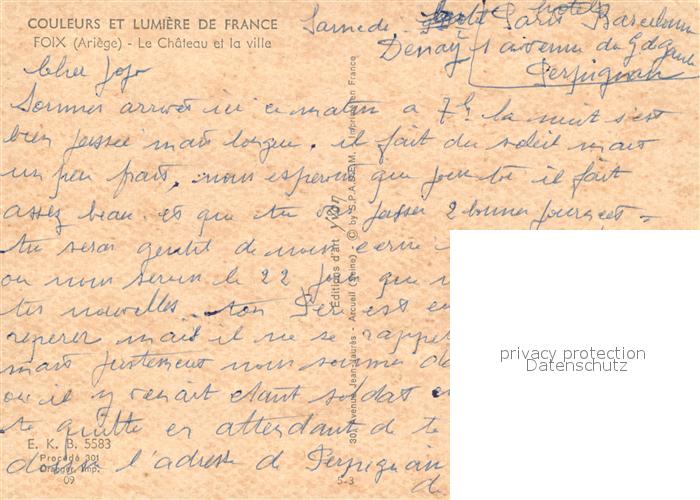 COULEURS ET LUMIÈRE DE FRANCE
FOIX (Ariège) - Le Château et la ville
Samedi
hotel Paris Barcelone
1 avenue du G de Gaulle
Perpignan
Cher Jojo
Sommes arrivés ici ce matin a 7h la nuit s'est
bien passée mais longue. il fait du soleil mais
un peu frais. nous esperons que pour toi il fait
assez beau. et que tu vas passer 2 bonnes journées
tu seras gentil de nous
ou nous serons le 22 que
tes nouvelles. ton Père est en
reperer mais il ne se rappel
mais justement nous sommes
ou il y venait etant soldat
te quitte en attendant de te
l'adresse de Perpignan
de
Editions d'art yvon
30, Avenue Jean-Jaurès - Arcueil (Seine) © by S.P.A.D.E.M. Imprimé en France
E. K. B. 5583
Procédé 301
Draeger Imp.
09
5-3
privacy protection
Datenschutz